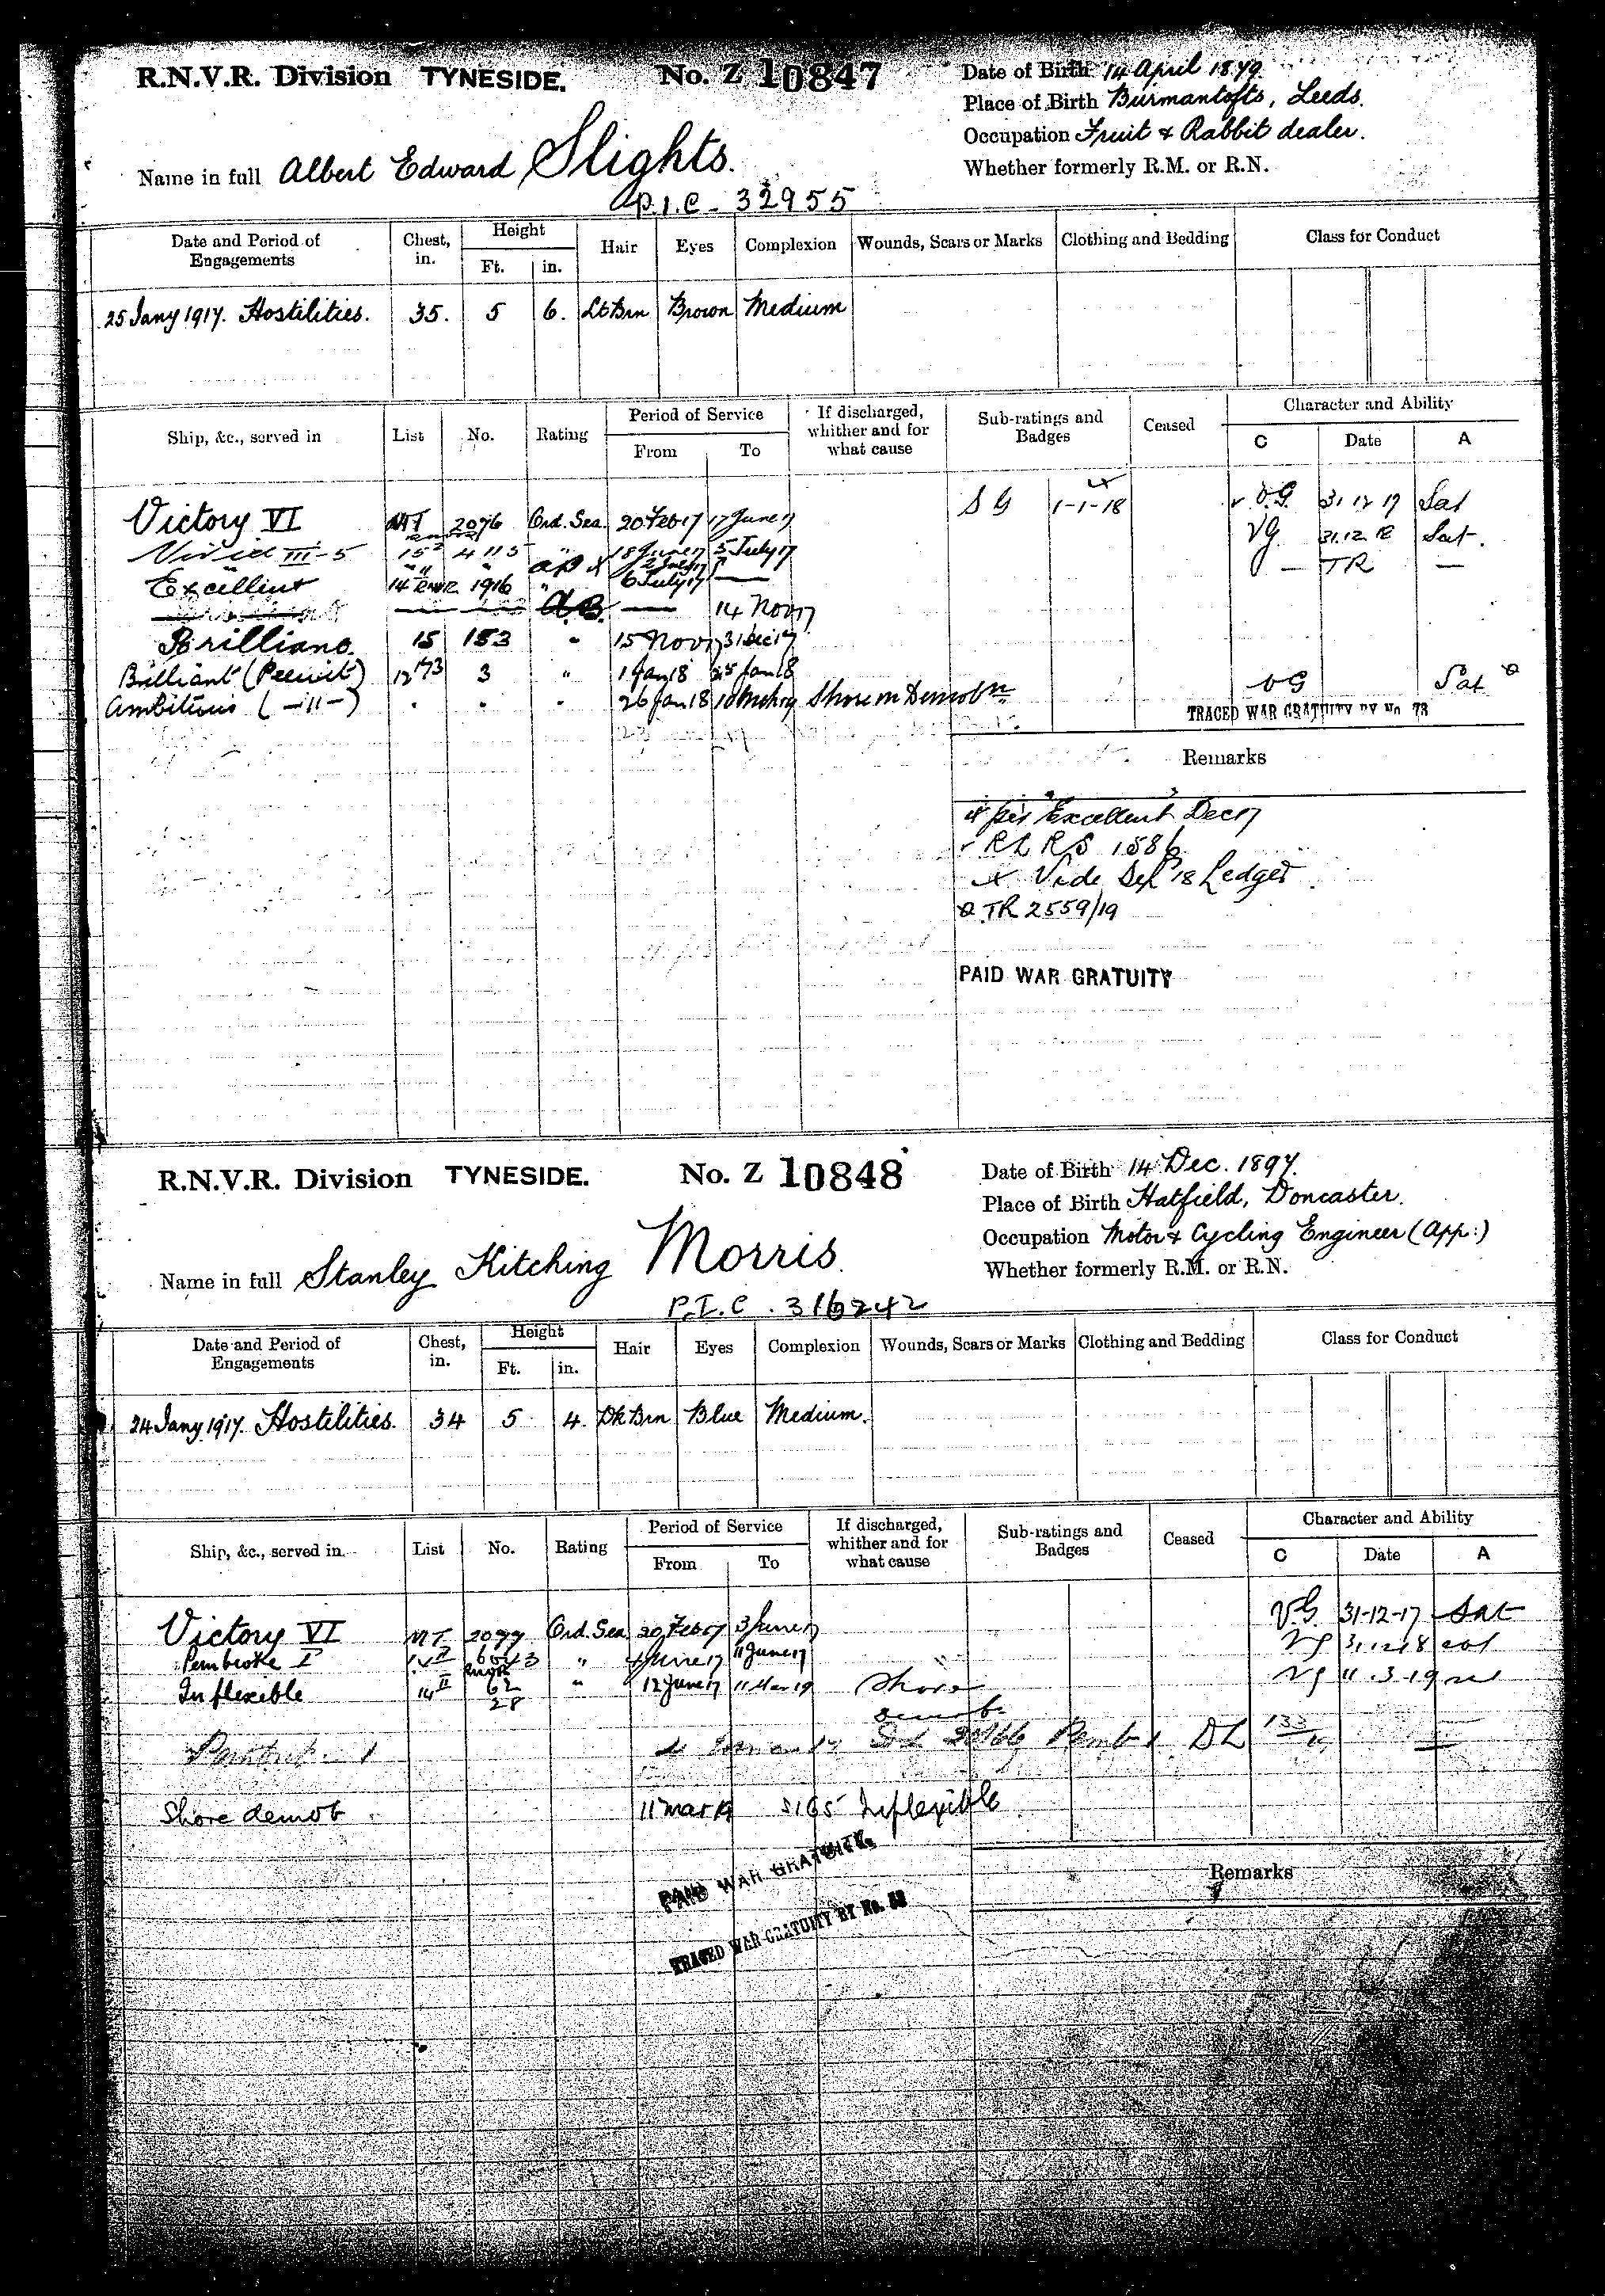 R.N.V.R. Division TYNESIDE. No. Z 10847
Date of Birth 14 April 1879.
Place of Birth Burmantofts, Leeds.
Occupation Fruit & Rabbit dealer.
Whether formerly R.M. or R.N.
Name in full Albert Edward Slights.
P.I.C - 32955
Date and Period of Engagements Chest, in. Height Ft. in. Hair Eyes Complexion Wounds, Scars or Marks Clothing and Bedding Class for Conduct
25 Jany 1917. Hostilities. 35. 5 6. Lt Brn Brown Medium
Ship, &c., served in List No. Rating Period of Service From To If discharged, whither and for what cause Sub-ratings and Badges Ceased Character and Ability C Date A
S G 1-1-18 V.G. 31.12.17 Sat
Victory VI 2076 Ord. Sea. 20 Feb 17 17 June 17 VG 31.12.18 Sat.
Vivid III-5 15 4115 " 18 June 17 5 July 17 — TR —
Excellent 14 RNVR 1916 " 6 July 17 —
A.B. — 14 Nov 17
Brilliant 15 183 " 15 Nov 17 31 Dec 17
Brilliant (Peewit) 12 3 " 1 Jan 18 25 Jan 18 VG Sat
Ambitious (-"-) . . . 26 Jan 18 Shore on Demobn
TRACED WAR GRATUITY BY No. 73
Remarks
per "Excellent" Dec 17
RL RS 1586
x Vide Sep 18 Ledger
TR 2559/19
PAID WAR GRATUITY
R.N.V.R. Division TYNESIDE. No. Z 10848
Date of Birth 14 Dec. 1897.
Place of Birth Hatfield, Doncaster.
Occupation Motor & Cycling Engineer (App:)
Whether formerly R.M. or R.N.
Name in full Stanley Kitching Morris.
P.I.C. 316242
Date and Period of Engagements Chest, in. Height Ft. in. Hair Eyes Complexion Wounds, Scars or Marks Clothing and Bedding Class for Conduct
24 Jany 1917. Hostilities. 34 5 4. Dk Brn Blue Medium.
Ship, &c., served in List No. Rating Period of Service From To If discharged, whither and for what cause Sub-ratings and Badges Ceased Character and Ability C Date A
Victory VI 2077 Ord. Sea. 20 Feb 17 3 June 17 V.G. 31-12-17 Sat
Pembroke I " 4 June 17 11 June 17 VG 31.12.18
Inflexible 14 62 " 12 June 17 11 Mar 19 Shore demob VG 11.3.19
28
Shore demob 11 Mar 19 Inflexible
PAID WAR GRATUITY.
TRACED WAR GRATUITY BY No.
Remarks